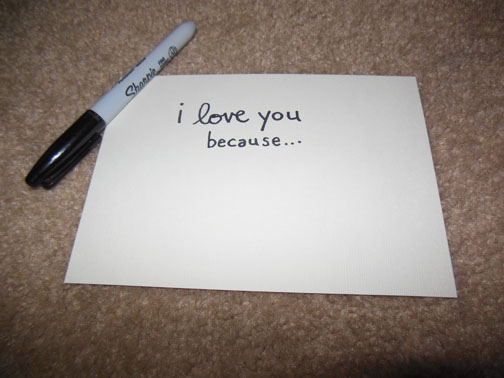 Sharpie
i love you
because...